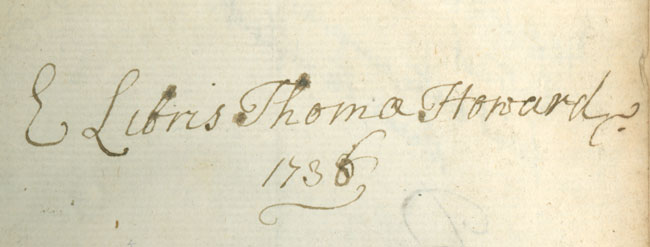 E Libris Thomæ Howard
1736